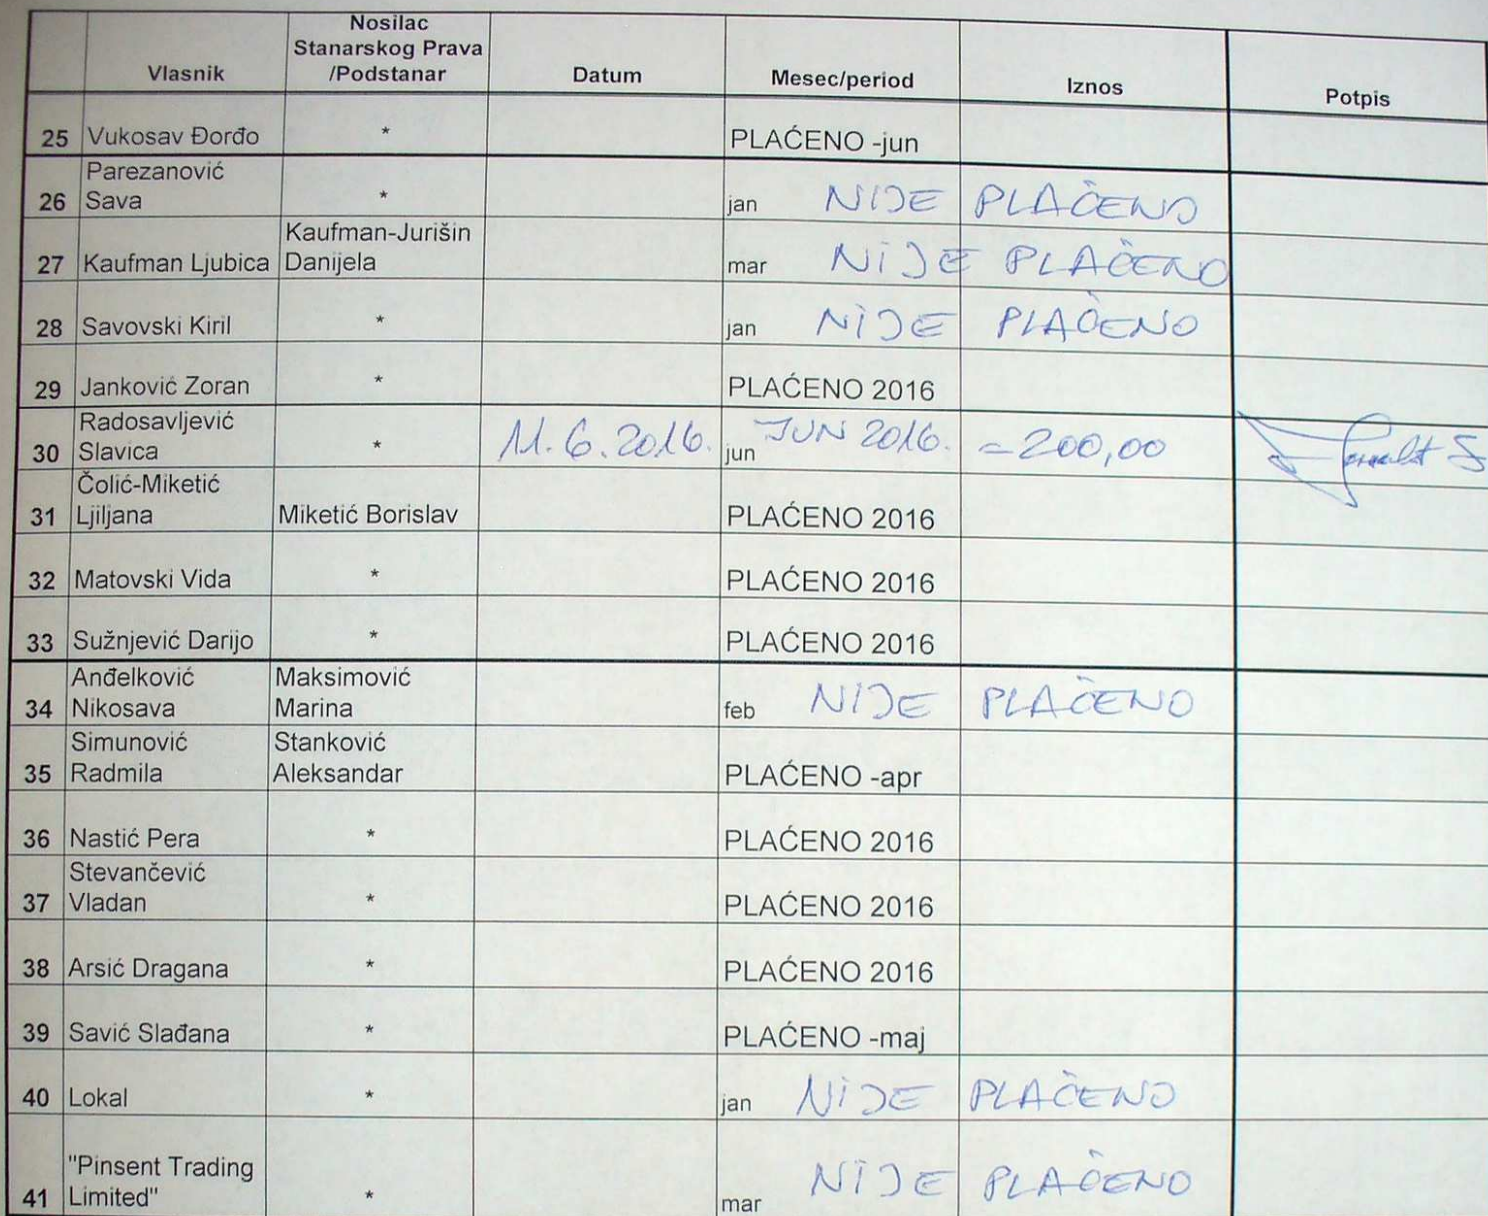 Vlasnik Nosilac Stanarskog Prava /Podstanar Datum Mesec/period Iznos Potpis
25 Vukosav Đorđo * PLAĆENO -jun
26 Parezanović Sava * jan NIJE PLAĆENO
27 Kaufman Ljubica Kaufman-Jurišin Danijela mar NIJE PLAĆENO
28 Savovski Kiril * jan NIJE PLAĆENO
29 Janković Zoran * PLAĆENO 2016
30 Radosavljević Slavica * 11.6.2016. jun JUN 2016. =200,00
31 Čolić-Miketić Ljiljana Miketić Borislav PLAĆENO 2016
32 Matovski Vida * PLAĆENO 2016
33 Sužnjević Darijo * PLAĆENO 2016
34 Anđelković Nikosava Maksimović Marina feb NIJE PLAĆENO
35 Simunović Radmila Stanković Aleksandar PLAĆENO -apr
36 Nastić Pera * PLAĆENO 2016
37 Stevančević Vladan * PLAĆENO 2016
38 Arsić Dragana * PLAĆENO 2016
39 Savić Slađana * PLAĆENO -maj
40 Lokal * jan NIJE PLAĆENO
41 "Pinsent Trading Limited" * mar NIJE PLAĆENO